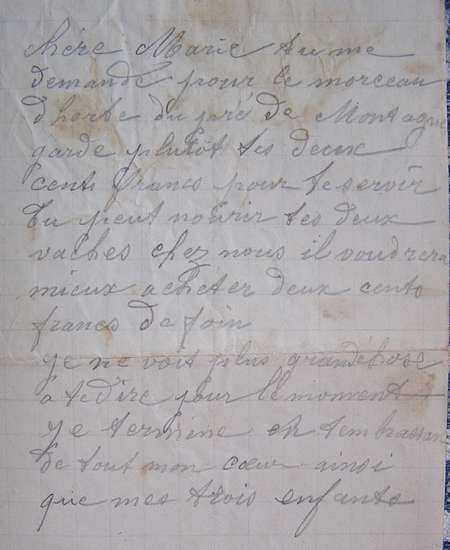 chère Marie tu me
demande pour le morceau
d'herbe du pré de Montagne
garde plutôt tes deux
cents francs pour te servir
tu peut nourir tes deux
vaches chez nous il voudrera
mieux acheter deux cents
francs de foin
Je ne voit plus grandchose
a te dire pour le moment
Je termine en tembrassan
de tout mon cœur ainsi
que mes trois enfants